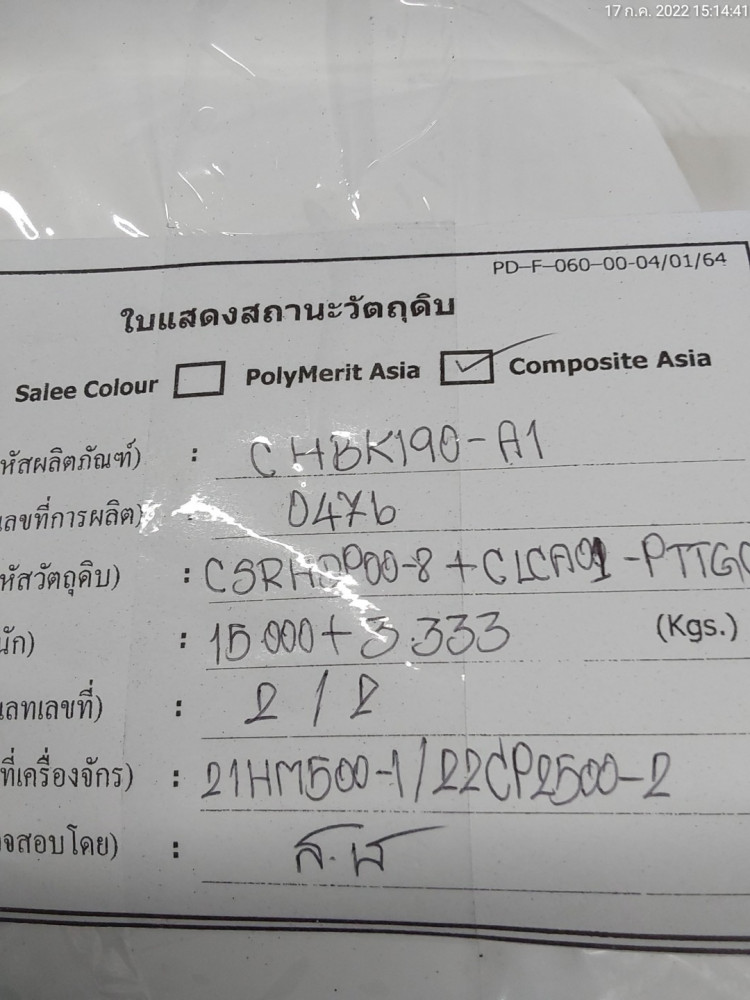 17 ก.ค. 2022 15:14:41
PD-F-060-00-04/01/64
ใบแสดงสถานะวัตถุดิบ
Salee Colour PolyMerit Asia ✓ Composite Asia
หัสผลิตภัณฑ์) : CHBK190-A1
ลขที่การผลิต) : 0476
หัสวัตถุดิบ) : + CLCA01-PTTGC
นัก) : 15.000 + 3.333 (Kgs.)
ลทเลขที่) : 2/2
ที่เครื่องจักร) : 21HM500-1/22CP2500-2
จสอบโดย) :